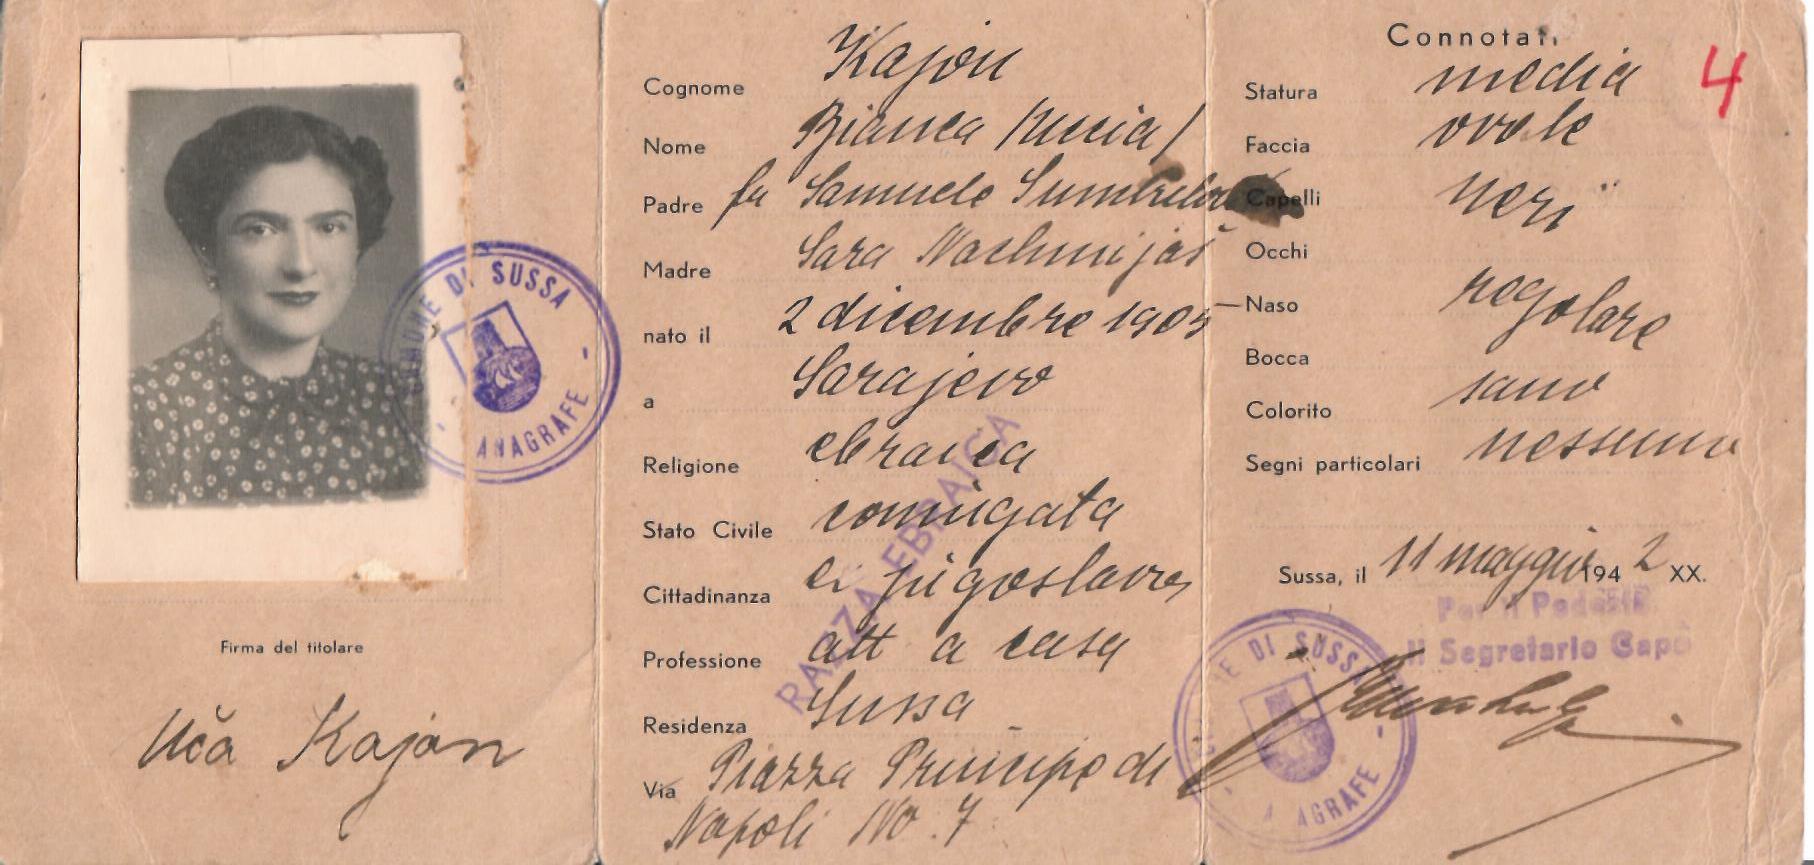 COMUNE DI SUSSA
- ANAGRAFE -
Firma del titolare
Uča Kajon
Cognome Kajon
Nome Bianca
Padre fu Samuele
Madre Sara
nato il 2 dicembre 1905
a Sarajevo
Religione ebraica
Stato Civile coniugata
Cittadinanza ex jugoslava
Professione att a casa
Residenza Sussa
Via Piazza Principe di
Napoli No. 7
RAZZA EBRAICA
Connotati
4
Statura media
Faccia ovale
Capelli neri
Occhi "
Naso regolare
Bocca
Colorito sano
Segni particolari nessuno
Sussa, il 11 maggio 1942 XX.
Per il Podestà
Il Segretario Capo
COMUNE DI SUSSA
- ANAGRAFE -